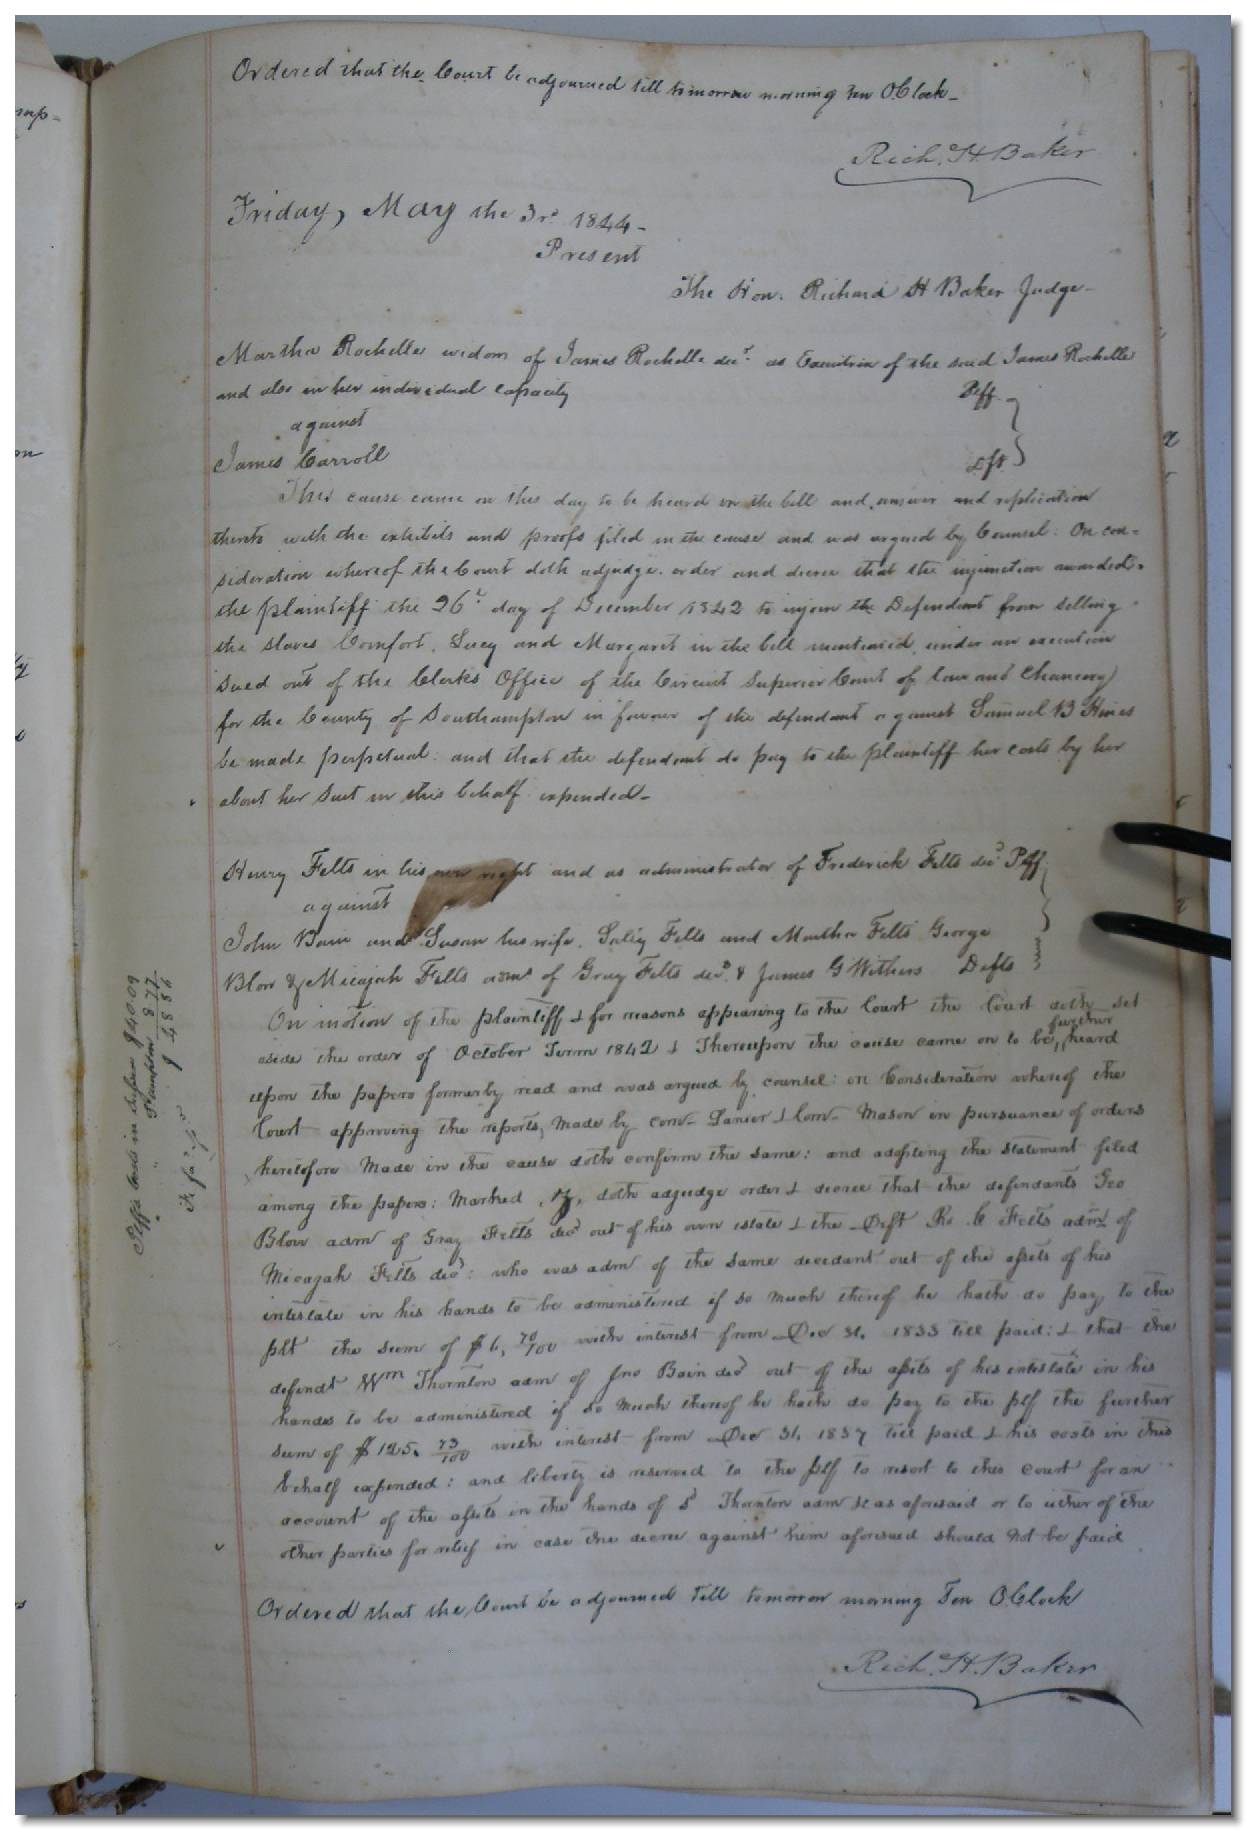 Ordered that the Court be adjourned till tomorrow morning ten O.Clock_
Rich. H Baker
Friday, May the 3rd 1844_
Present
The Hon. Richard H Baker Judge_
Martha Rochelle widow of James Rochelle decd. as Executrix of the said James Rochelle
and also in her individual capacity Plff
against
James Carroll Dft
This cause came on this day to be heard on the bill and answer and replication
thereto with the exhibits and proofs filed in the cause and was argued by Counsel: On con-
sideration whereof the Court doth adjudge. order and decree that the injunction awarded
the plaintiff the 26th day of December 1842 to injoin the Defendant from selling
the slaves Comfort, Lucy and Margaret in the bill mentioned, under an execution
sued out of the Clerks Office of the Circuit Superior Court of law and Chancery
for the County of Southampton in favour of the defendant against Samuel B Hines
be made perpetual: and that the defendant do pay to the plaintiff her costs by her
about her suit in this behalf expended_
Henry Felts in his own right and as administrator of Frederick Felts decd Plff
against
John Bain and Susan his wife, Sally Felts and Martha Felts George
Blow & Micajah Felts adms of Gray Felts decd. & James G Withers Defts
On motion of the plaintiff & for reasons appearing to the Court the Court doth set
aside the order of October Term 1842 & Thereupon the cause came on to be further heard
upon the papers formerly read and was argued by counsel: on Consideration whereof the
Court approving the reports, Made by com- Lanier & Com- Mason in pursuance of orders
heretofore Made in the cause doth confirm the same: and adopting the statement filed
among the papers: Marked doth adjudge order & decree that the defendants Geo
Blow adm of Gray Felts decd out of his own estate & the Deft Ro. C Felts adm of
Micajah Felts decd: who was adm of the same decedant out of the assets of his
intestate in his hands to be administered if so much thereof he hath do pay, to the
plt the sum of $6, 70/100 with interest from Dec 31, 1833 till paid: & that the
defendt Wm Thornton adm of Jno Bain decd out of the assets of his intestate in his
hands to be administered if so much thereof he hath do pay to the plf the further
sum of $125. 73/100 with interest from Dec 31, 1837 till paid & his costs in this
behalf expended: and liberty is reserved to the plf to resort to this court for an
account of the assets in the hands of sd Thornton adm &c as aforesaid or to either of the
other parties for relief in case the decree against him aforesaid should not be paid
Ordered that the Court be adjourned till tomorrow morning Ten O.Clock
Rich. H. Baker
Plffs Costs in $40.09
8.77
$48.86